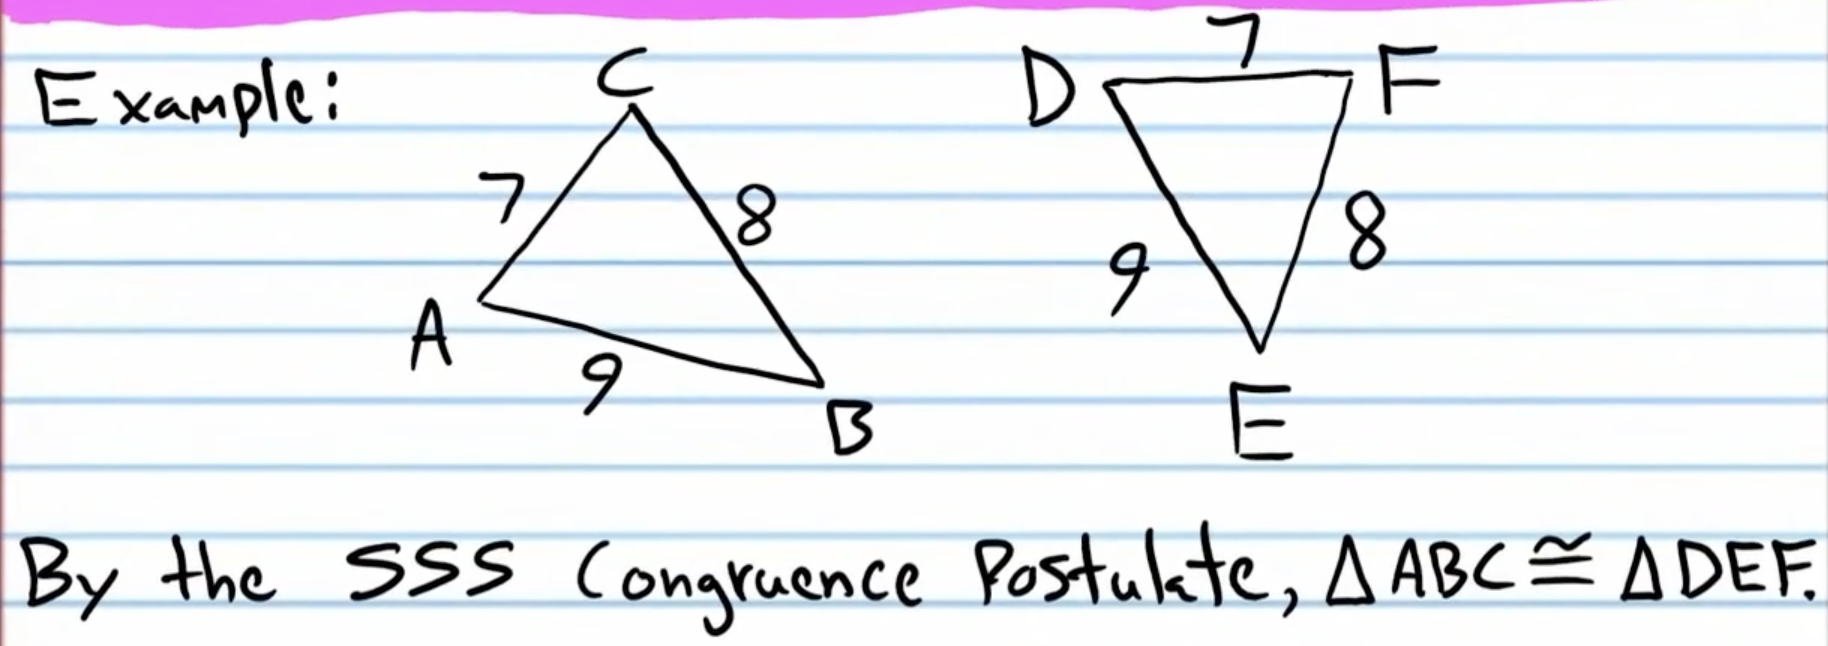 Example:
C
7
8
A
9
B
7
D
F
9
8
E
By the SSS Congruence Postulate, △ABC ≅ △DEF.